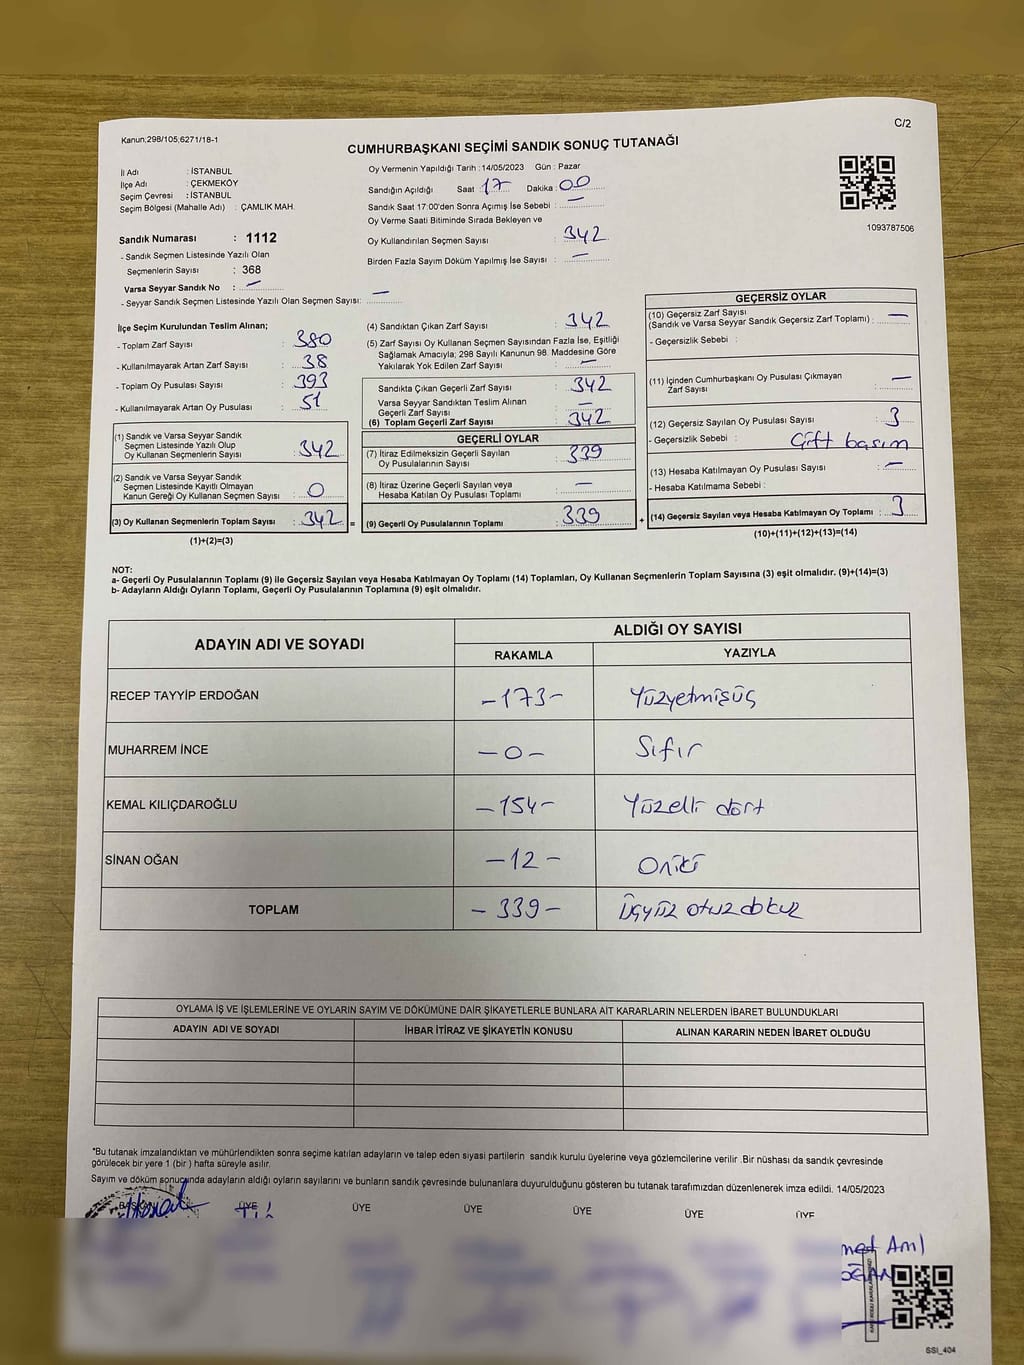 Kanun;298/105;6271/18-1
C/2
CUMHURBAŞKANI SEÇİMİ SANDIK SONUÇ TUTANAĞI
İl Adı : İSTANBUL
İlçe Adı : ÇEKMEKÖY
Seçim Çevresi : İSTANBUL
Seçim Bölgesi (Mahalle Adı) : ÇAMLIK MAH.
Sandık Numarası : 1112
- Sandık Seçmen Listesinde Yazılı Olan
Seçmenlerin Sayısı : 368
Varsa Seyyar Sandık No : —
- Seyyar Sandık Seçmen Listesinde Yazılı Olan Seçmen Sayısı: —
Oy Vermenin Yapıldığı Tarih : 14/05/2023 Gün : Pazar
Sandığın Açıldığı Saat : 17 Dakika : 00
Sandık Saat 17:00'den Sonra Açımış İse Sebebi : —
Oy Verme Saati Bitiminde Sırada Bekleyen ve
Oy Kullandırılan Seçmen Sayısı : 342
Birden Fazla Sayım Döküm Yapılmış İse Sayısı : —
1093787506
İlçe Seçim Kurulundan Teslim Alınan;
- Toplam Zarf Sayısı : 380
- Kullanılmayarak Artan Zarf Sayısı : 38
- Toplam Oy Pusulası Sayısı : 393
- Kullanılmayarak Artan Oy Pusulası : 51
(1) Sandık ve Varsa Seyyar Sandık
Seçmen Listesinde Yazılı Olup
Oy Kullanan Seçmenlerin Sayısı : 342
(2) Sandık ve Varsa Seyyar Sandık
Seçmen Listesinde Kayıtlı Olmayan
Kanun Gereği Oy Kullanan Seçmen Sayısı : 0
(3) Oy Kullanan Seçmenlerin Toplam Sayısı : 342 =
(1)+(2)=(3)
(4) Sandıktan Çıkan Zarf Sayısı : 342
(5) Zarf Sayısı Oy Kullanan Seçmen Sayısından Fazla İse, Eşitliği
Sağlamak Amacıyla; 298 Sayılı Kanunun 98. Maddesine Göre
Yakılarak Yok Edilen Zarf Sayısı : —
Sandıkta Çıkan Geçerli Zarf Sayısı : 342
Varsa Seyyar Sandıktan Teslim Alınan
Geçerli Zarf Sayısı : —
(6) Toplam Geçerli Zarf Sayısı : 342
GEÇERLİ OYLAR
(7) İtiraz Edilmeksizin Geçerli Sayılan
Oy Pusulalarının Sayısı : 339
(8) İtiraz Üzerine Geçerli Sayılan veya
Hesaba Katılan Oy Pusulası Toplamı : —
(9) Geçerli Oy Pusulalarının Toplamı : 339 +
GEÇERSİZ OYLAR
(10) Geçersiz Zarf Sayısı
(Sandık ve Varsa Seyyar Sandık Geçersiz Zarf Toplamı) : —
- Geçersizlik Sebebi :
(11) İçinden Cumhurbaşkanı Oy Pusulası Çıkmayan
Zarf Sayısı : —
(12) Geçersiz Sayılan Oy Pusulası Sayısı : 3
- Geçersizlik Sebebi : Çift basım
(13) Hesaba Katılmayan Oy Pusulası Sayısı : —
- Hesaba Katılmama Sebebi :
(14) Geçersiz Sayılan veya Hesaba Katılmayan Oy Toplamı : 3
(10)+(11)+(12)+(13)=(14)
NOT:
a- Geçerli Oy Pusulalarının Toplamı (9) ile Geçersiz Sayılan veya Hesaba Katılmayan Oy Toplamı (14) Toplamları, Oy Kullanan Seçmenlerin Toplam Sayısına (3) eşit olmalıdır. (9)+(14)=(3)
b- Adayların Aldığı Oyların Toplamı, Geçerli Oy Pusulalarının Toplamına (9) eşit olmalıdır.
ADAYIN ADI VE SOYADI ALDIĞI OY SAYISI
RAKAMLA YAZIYLA
RECEP TAYYİP ERDOĞAN -173- Yüzyetmişüç
MUHARREM İNCE -0- Sıfır
KEMAL KILIÇDAROĞLU -154- Yüzelli dört
SİNAN OĞAN -12- Oniki
TOPLAM -339- Üçyüz otuz dokuz
OYLAMA İŞ VE İŞLEMLERİNE VE OYLARIN SAYIM VE DÖKÜMÜNE DAİR ŞİKAYETLERLE BUNLARA AİT KARARLARIN NELERDEN İBARET BULUNDUKLARI
ADAYIN ADI VE SOYADI İHBAR İTİRAZ VE ŞİKAYETİN KONUSU ALINAN KARARIN NEDEN İBARET OLDUĞU
*Bu tutanak imzalandıktan ve mühürlendikten sonra seçime katılan adayların ve talep eden siyasi partilerin sandık kurulu üyelerine veya gözlemcilerine verilir .Bir nüshası da sandık çevresinde
görülecek bir yere 1 (bir ) hafta süreyle asılır.
Sayım ve döküm sonucunda adayların aldığı oyların sayılarını ve bunların sandık çevresinde bulunanlara duyurulduğunu gösteren bu tutanak tarafımızdan düzenlenerek imza edildi. 14/05/2023
BAŞKAN ÜYE ÜYE ÜYE ÜYE ÜYE ÜYE
SSI_404